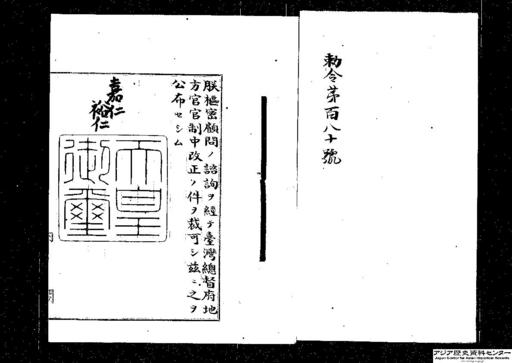 勅令第百八十號
朕樞密顧問ノ諮詢ヲ經テ臺灣總督府地
方官官制中改正ノ件ヲ裁可シ茲ニ之ヲ
公布セシム
嘉仁
裕仁
天皇
御璽
アジア歴史資料センター
Japan Center for Asian Historical Records